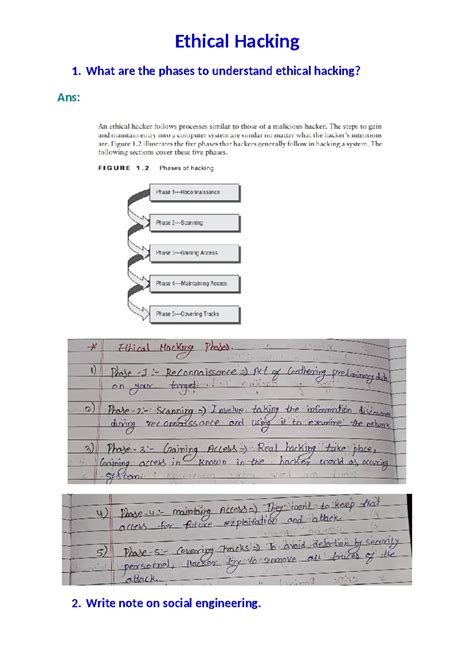 Ethical Hacking
1. What are the phases to understand ethical hacking?
Ans:
An ethical hacker follows processes similar to those of a malicious hacker. The steps to gain
and maintain entry into a computer system are similar no matter what the hacker's intentions
are. Figure 1.2 illustrates the five phases that hackers generally follow in hacking a system. The
following sections cover these five phases.
FIGURE 1.2 Phases of hacking
Phase 1—Reconnaissance
Phase 2—Scanning
Phase 3—Gaining Access
Phase 4—Maintaining Access
Phase 5—Covering Tracks
* Ethical Hacking Phases
1) Phase-1:- Reconnaissance => Act of Gathering preliminary data
on your target
2) Phase-2:- Scanning => Involve taking the information discovered
during reconnaissance and using it to examine the network.
3) Phase-3:- Gaining Access => Real hacking take place,
Gaining access is known in the hacker world as
System.
4) Phase-4:- Access => They want to keep that
access for future exploitation and attack.
5) Phase-5:- Covering Tracks => To avoid by security
personnel, Hacker try to remove all traces of the
attack.
2. Write note on social engineering.